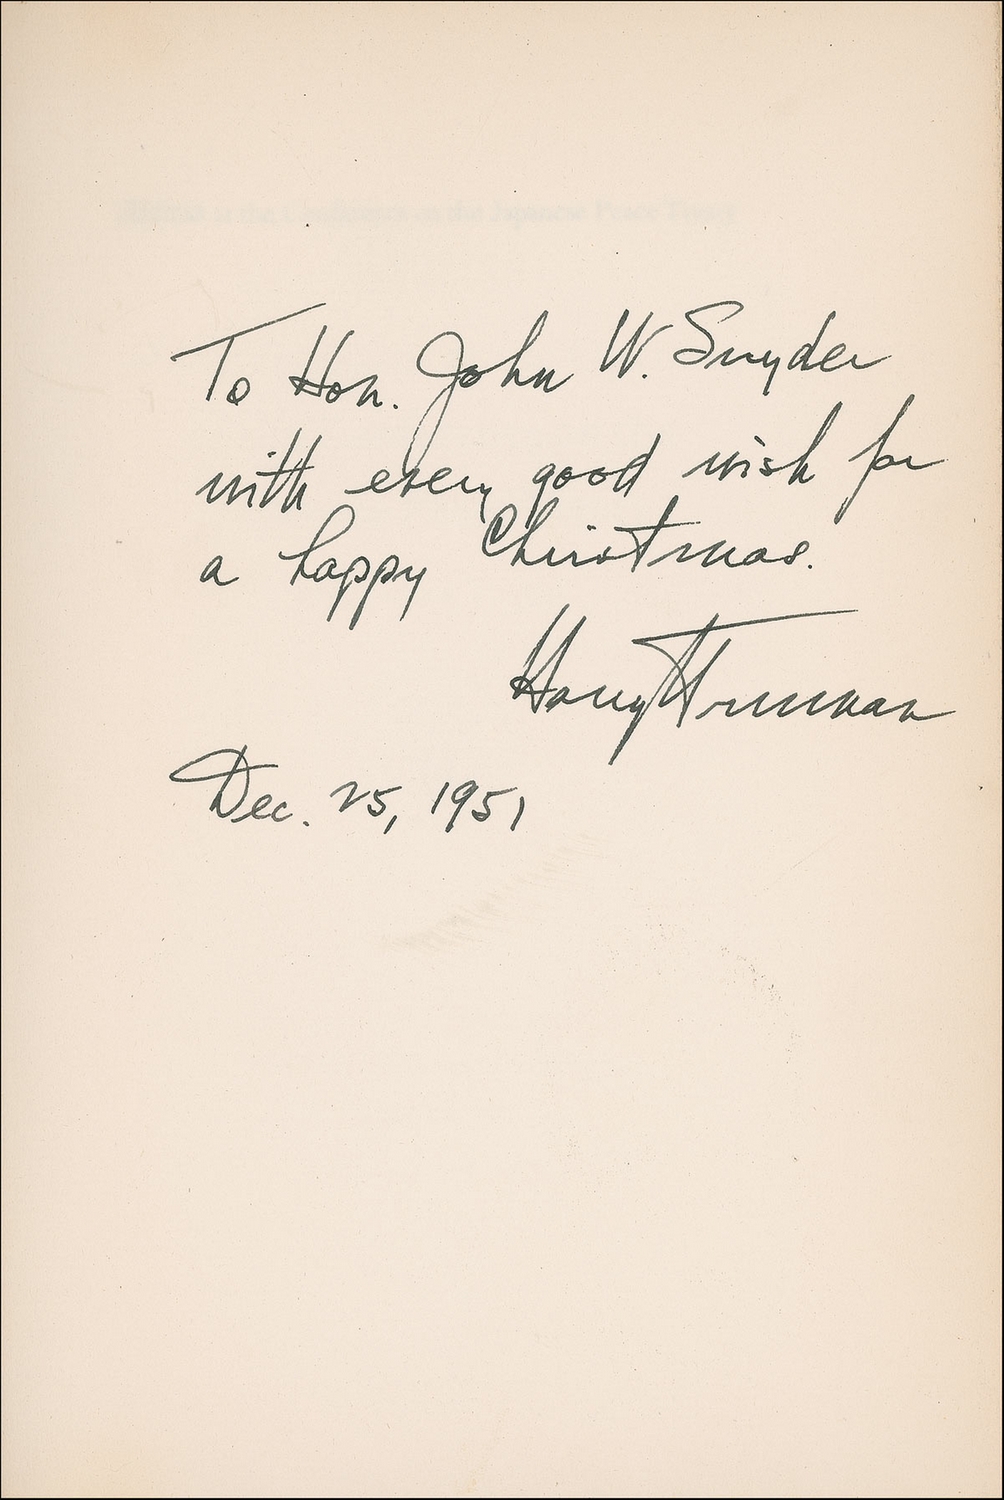 at the Conference on the Japanese Peace Treaty
To Hon. John W. Snyder
with every good wish for
a happy Christmas.
Harry Truman
Dec. 25, 1951